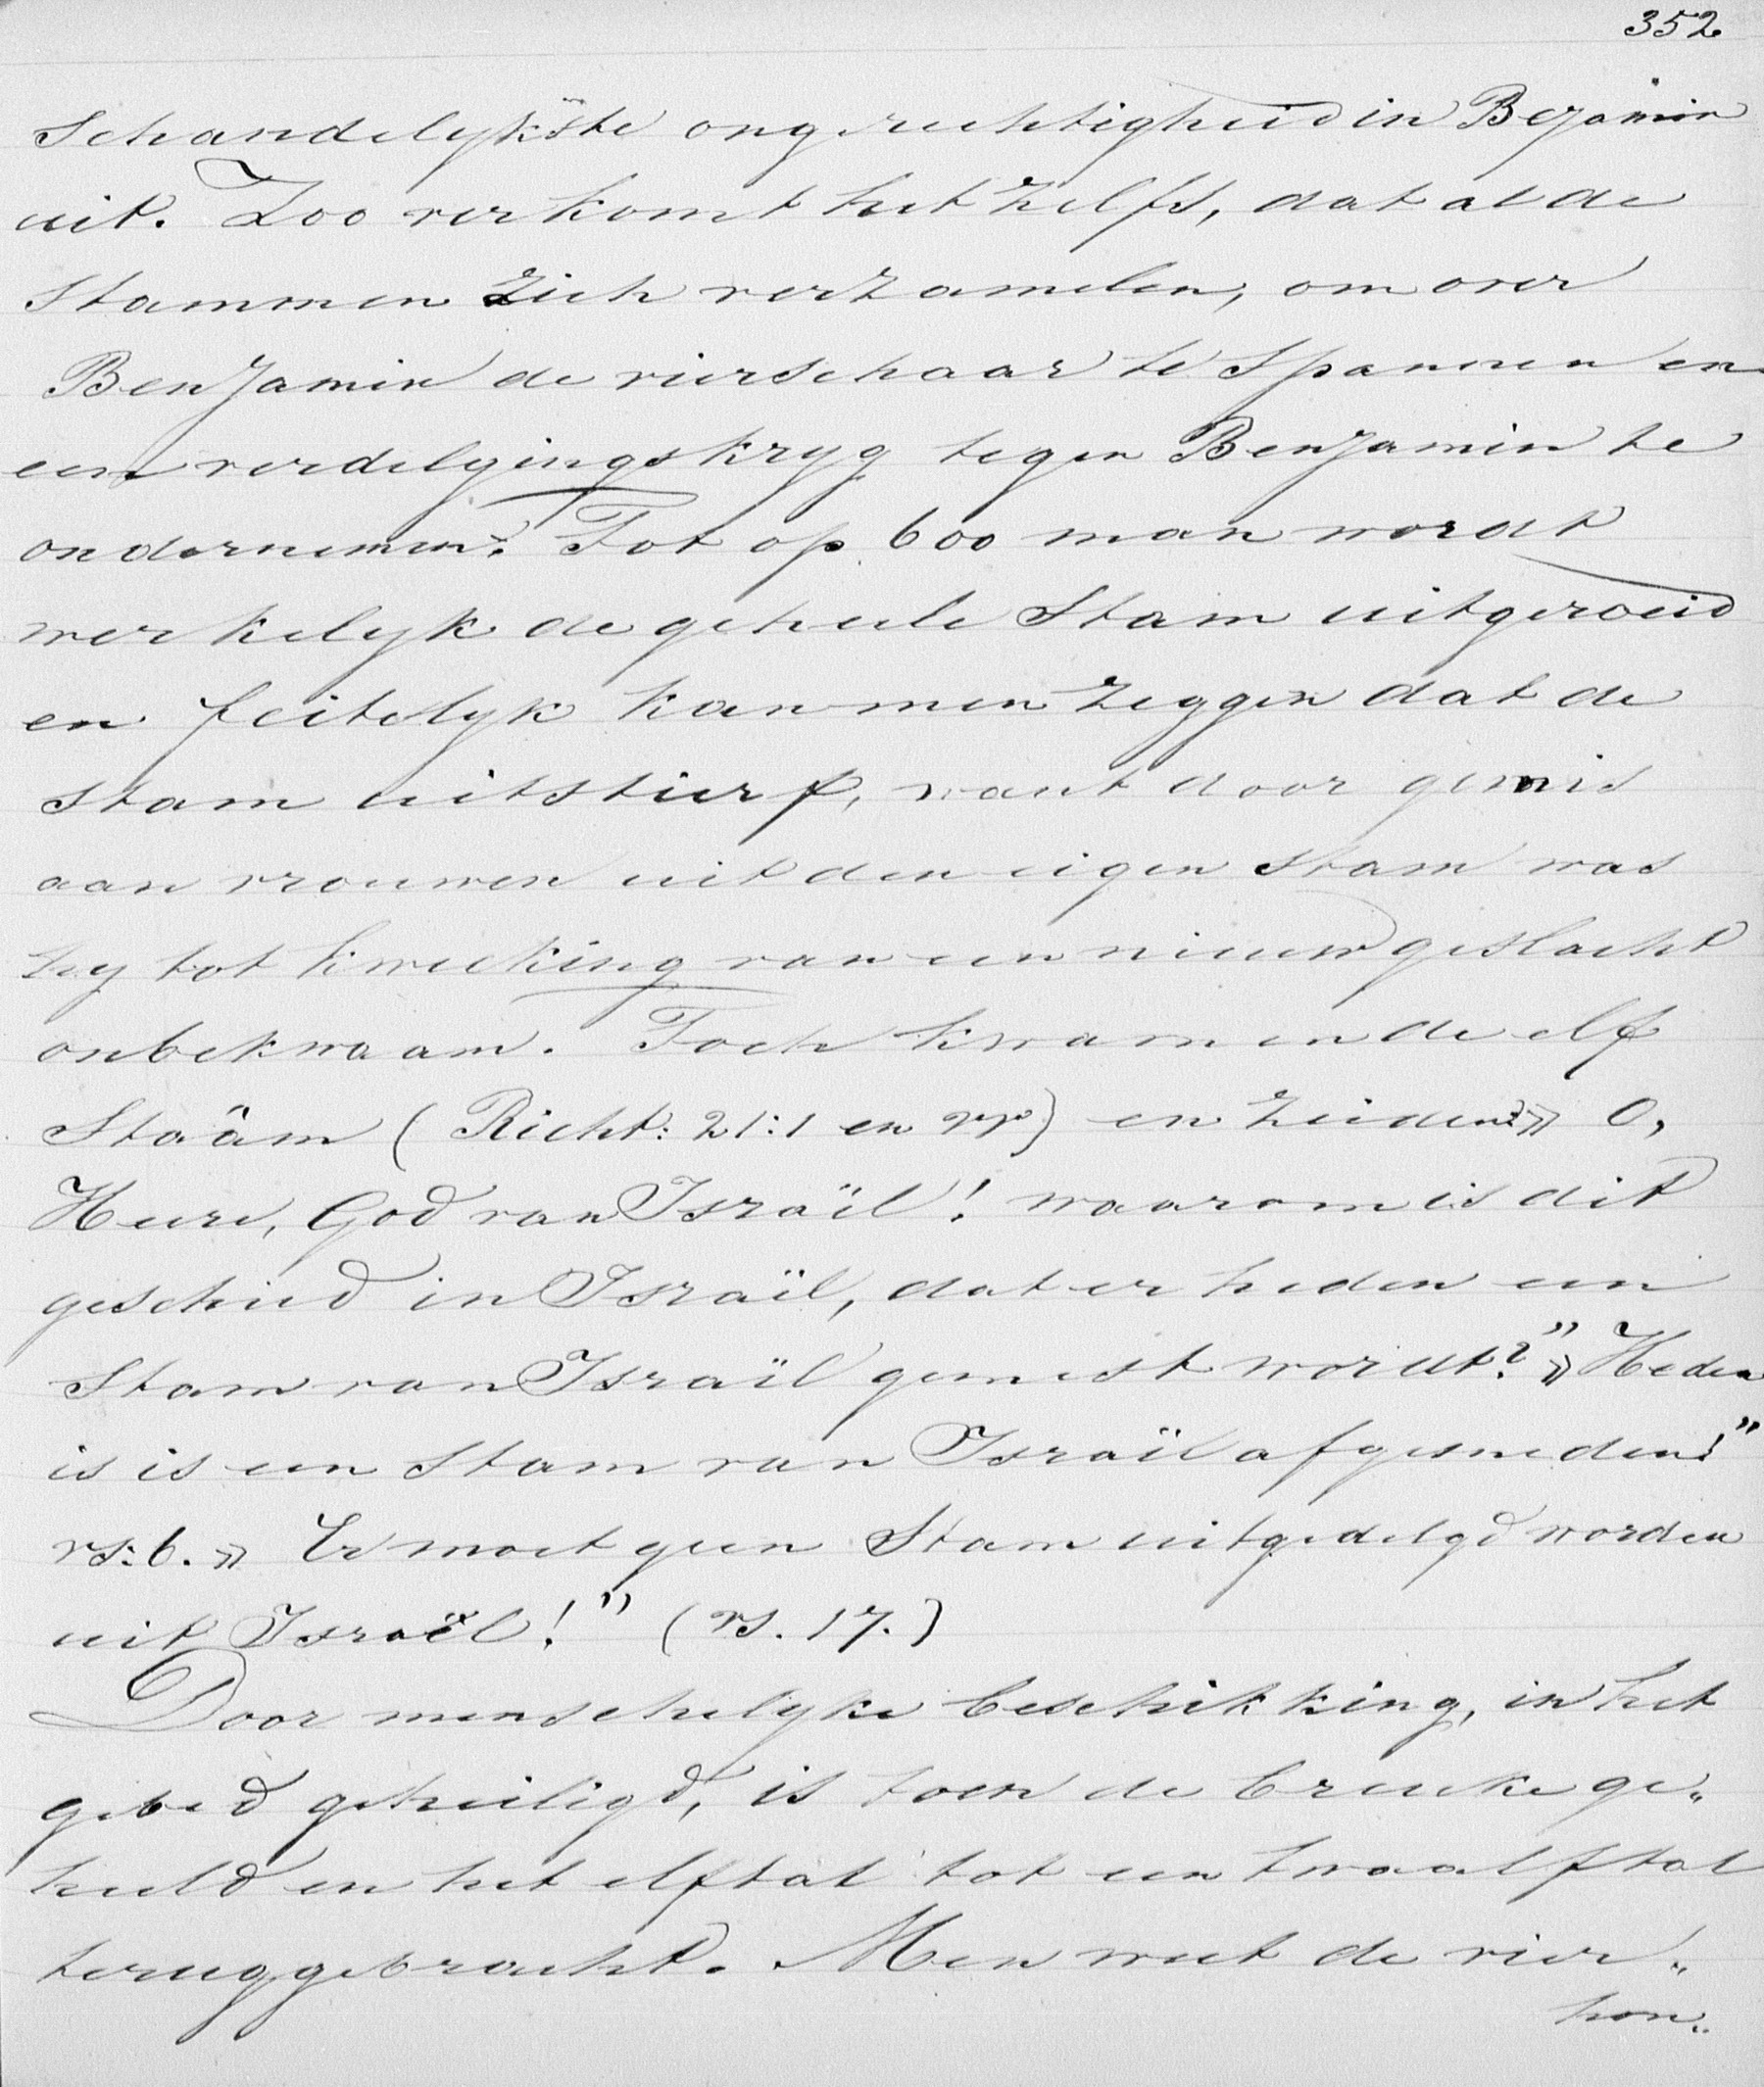 352
schandelykste ongerechtigheid in Bejamin
uit. Zoo ver komt het zelfs, dat al de
stammen zich verzamelen, om over
Benjamin de vierschaar te spannen en
een verdelgingskryg tegen Benjamin te
ondernemen. Tot op 600 man wordt
werkelyk de geheele Stam uitgeroeid
en feitelyk kan men zeggen dat de
stam uitstierf, want door gemis
aan vrouwen uit den eigen stam was
hy tot kweeking van een nieuw geslacht
onbekwaam. Toch kwamen de elf
Stäam (Richt: 21:1 en vv) en zeiden: » O,
Heere, God van Israël! waarom is dit
geschied in Israël, dat er heden een
Stam van Israël gemist wordt?” » Heden
is is een Stam van Israël afgesneden!”
vs: 6. » Er moet geen Stam uitgedelgd worden
uit Israël!” (vs. 17.)
Door menschelyke beschikking, in het
gebed geheiligd, is toen de breuke ge„
heeld en het elftal tot een twaalftal
teruggebracht. Men weet de vier„
hon„